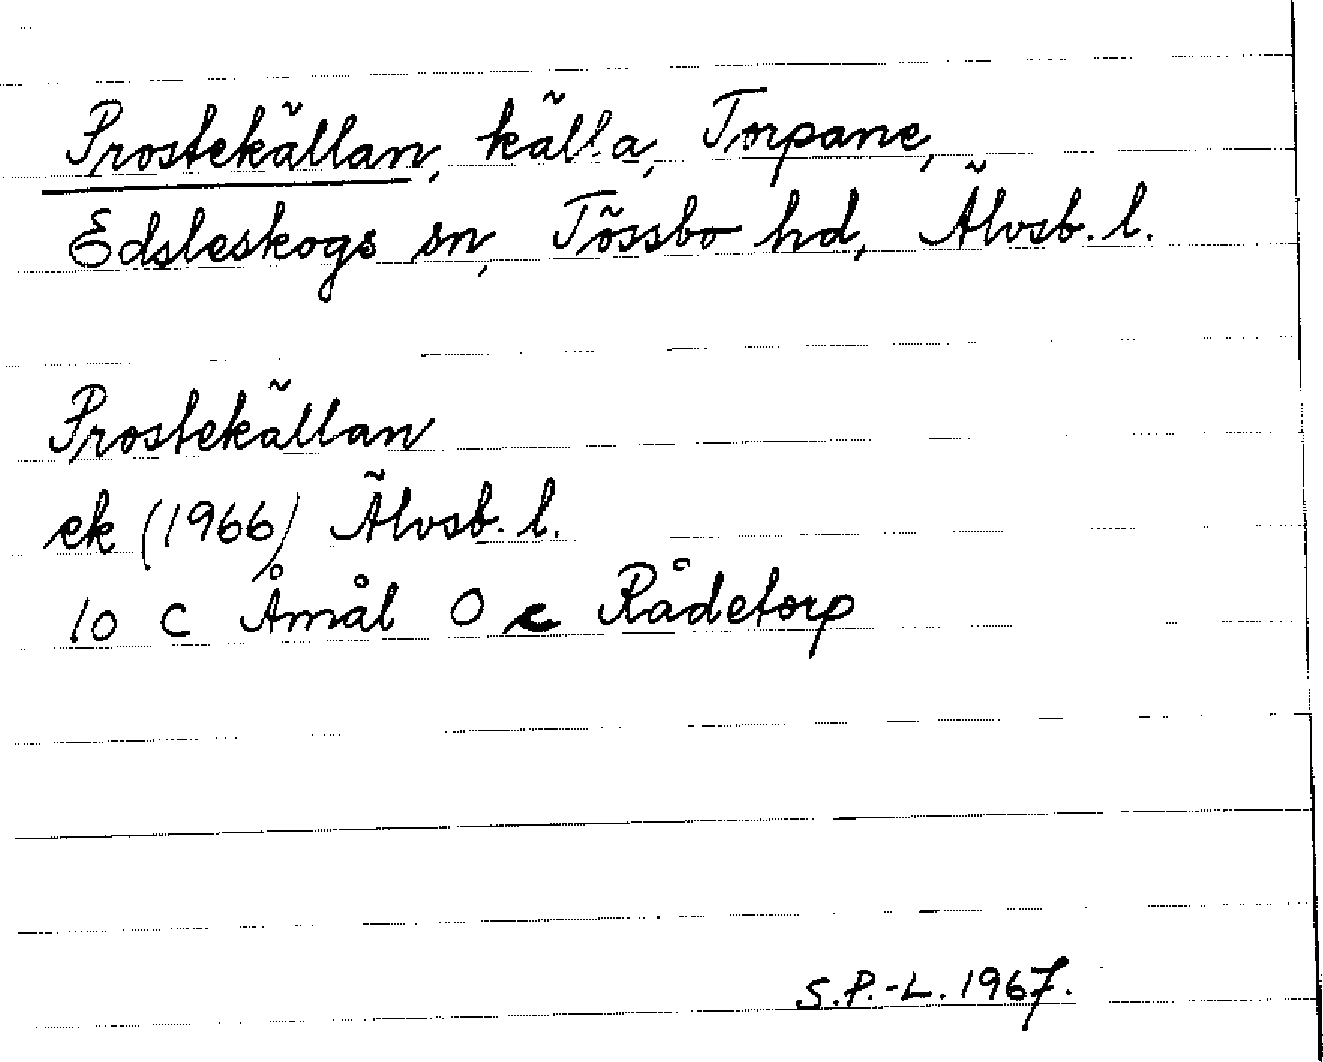 Prostekällan, källa, Torpane,
Edsleskogs sn, Tössbo hd, Älvsb. l.
Prostekällan
ek (1966) Älvsb. l.
10 C Åmål O c Rådetorp
S.P.-L. 1967.